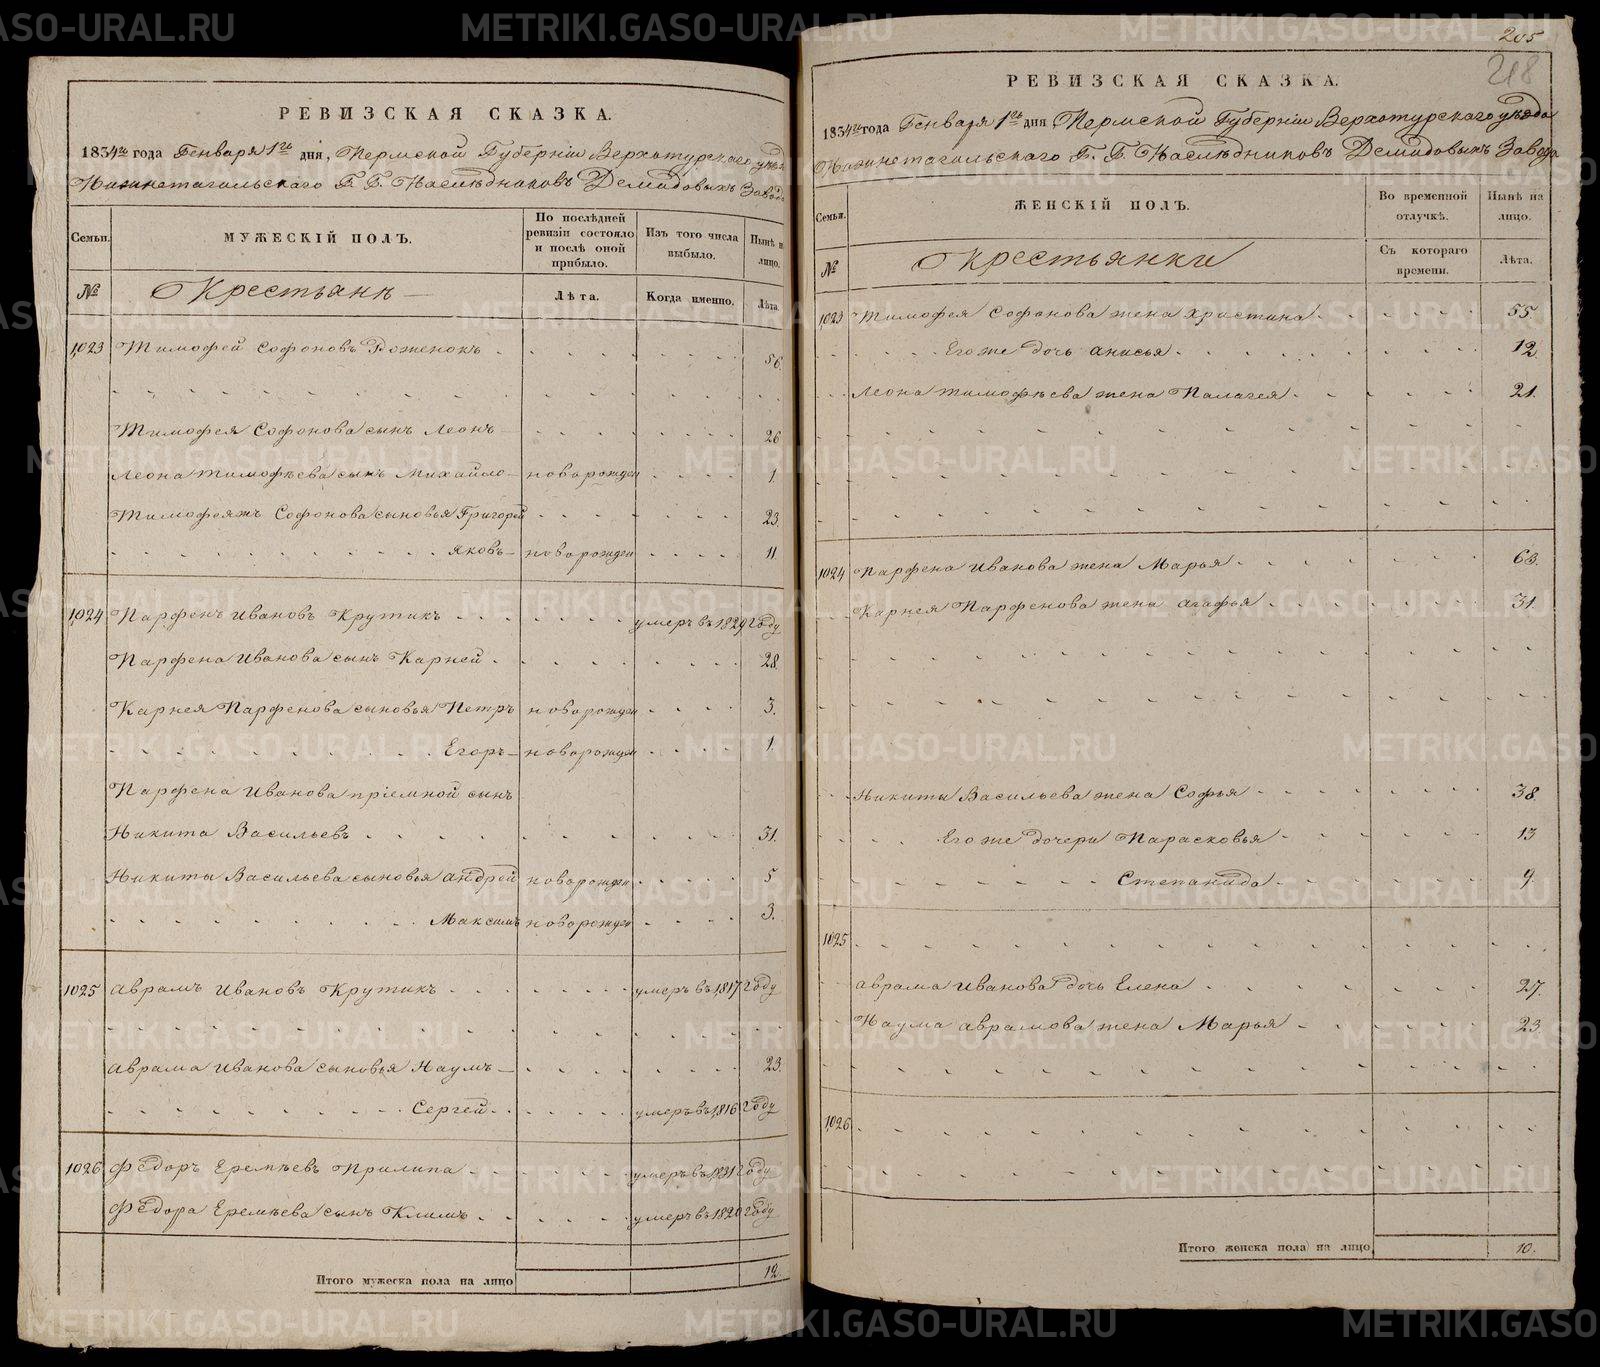 РЕВИЗСКАЯ СКАЗКА.
1834го года Генваря 1го дня, Пермской Губернiи Верхотурскаго уезда
Нижнетагильскаго Г. Г. Наслѣдниковъ Демидовыхъ Завода
Семьи.
МУЖЕСКIЙ ПОЛЪ.
По послѣдней ревизiи состояло и послѣ оной прибыло.
Изъ того числа выбыло.
Нынѣ на лицо.
№
Крестьяне
Лѣта.
Когда именно.
Лѣта.
1023 Тимофей Софоновъ Роженокъ 56.
Тимофея Софонова сынъ Леонъ 26
Леона Тимофѣева сынъ Михайло новорожден 1.
Тимофеяжъ Софонова сыновья Григорей 23.
Яковъ новорожден 11
1024 Парфенъ Ивановъ Крутикъ умеръ въ 1829 году
Парфена Иванова сынъ Карней 28.
Карнея Парфенова сыновья Петръ новорожден 3.
Егоръ новорожден 1.
Парфена Иванова прiемной сынъ
Никита Васильевъ 31.
Никиты Васильева сыновья Андрей новорожден 5
Максимъ новорожден 3.
1025 Аврамъ Ивановъ Крутикъ умеръ въ 1817 году
Аврама Иванова сыновья Наумъ 23.
Сергей умеръ въ 1816 году
1026 Федоръ Еремѣевъ Прилипа умеръ въ 1831 году
Федора Еремѣева сынъ Климъ умеръ въ 1820 году
Итого мужеска пола на лицо 12.
205
218
РЕВИЗСКАЯ СКАЗКА.
1834го года Генваря 1го дня Пермской Губернiи Верхотурскаго уезда
Нижнетагильскаго Г. Г. Наслѣдниковъ Демидовыхъ Завода
Семьи.
ЖЕНСКIЙ ПОЛЪ.
Во временной отлучкѣ.
Нынѣ на лицо.
№
Крестьянки
Съ котораго времени.
Лѣта.
1023 Тимофея Софонова жена Христина 55.
Его же дочь Анисья 12.
Леона Тимофѣева жена Палагея 21.
1024 Парфена Иванова жена Марья 63.
Карнея Парфенова жена Агафья 31.
Никиты Васильева жена Софья 38.
Его же дочери Парасковья 13
Степанида 9.
1025
Аврама Иванова дочь Елена 27.
Наума Аврамова жена Марья 23.
1026
Итого женска пола на лицо 10.
METRIKI.GASO-URAL.RU